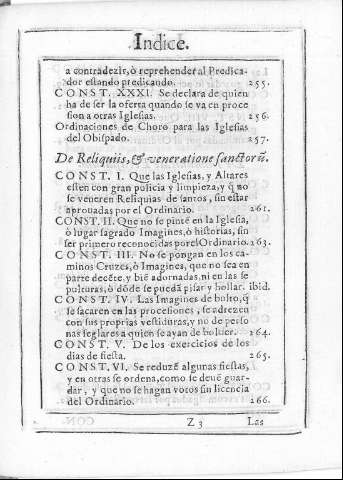 Indice.
a contradezir, ò reprehender al Predica-
dor estando predicando. 255.
CONST. XXXI. Se declara de quien
ha de ser la oferta quando se va en proce
sion a otras Iglesias. 256.
Ordinaciones de Choro para las Iglesias
del Obispado. 257.
De Reliquiis, & veneratione sanctorũ.
CONST. I. Que las Iglesias, y Altares
esten con gran policia y limpieza, y q̃ no
se veneren Reliquias de santos, sin estar
aprouadas por el Ordinario. 261.
CONST. II. Que no se pintẽ en la Iglesia,
ò lugar sagrado Imagines, ò historias, sin
ser primero reconocidas por el Ordinario. 263.
CONST. III. No se pongan en los ca-
minos Cruzes, ò Imagines, que no sea en
parte decẽte, y biẽ adornadas, ni en las se
pulturas, ò dõde se puedã pisar y hollar. ibid.
CONST. IV. Las Imagines de bulto, q̃
se sacaren en las procesiones, se adrezen
con sus proprias vestiduras, y no de perso
nas seglares a quien se ayan de boluer. 264.
CONST. V. De los exercicios de los
dias de fiesta. 265.
CONST. VI. Se reduzẽ algunas fiestas,
y en otras se ordena, como se deuẽ guar-
dar, y que no se hagan votos sin licencia
del Ordinario. 266.
Z 3 Las